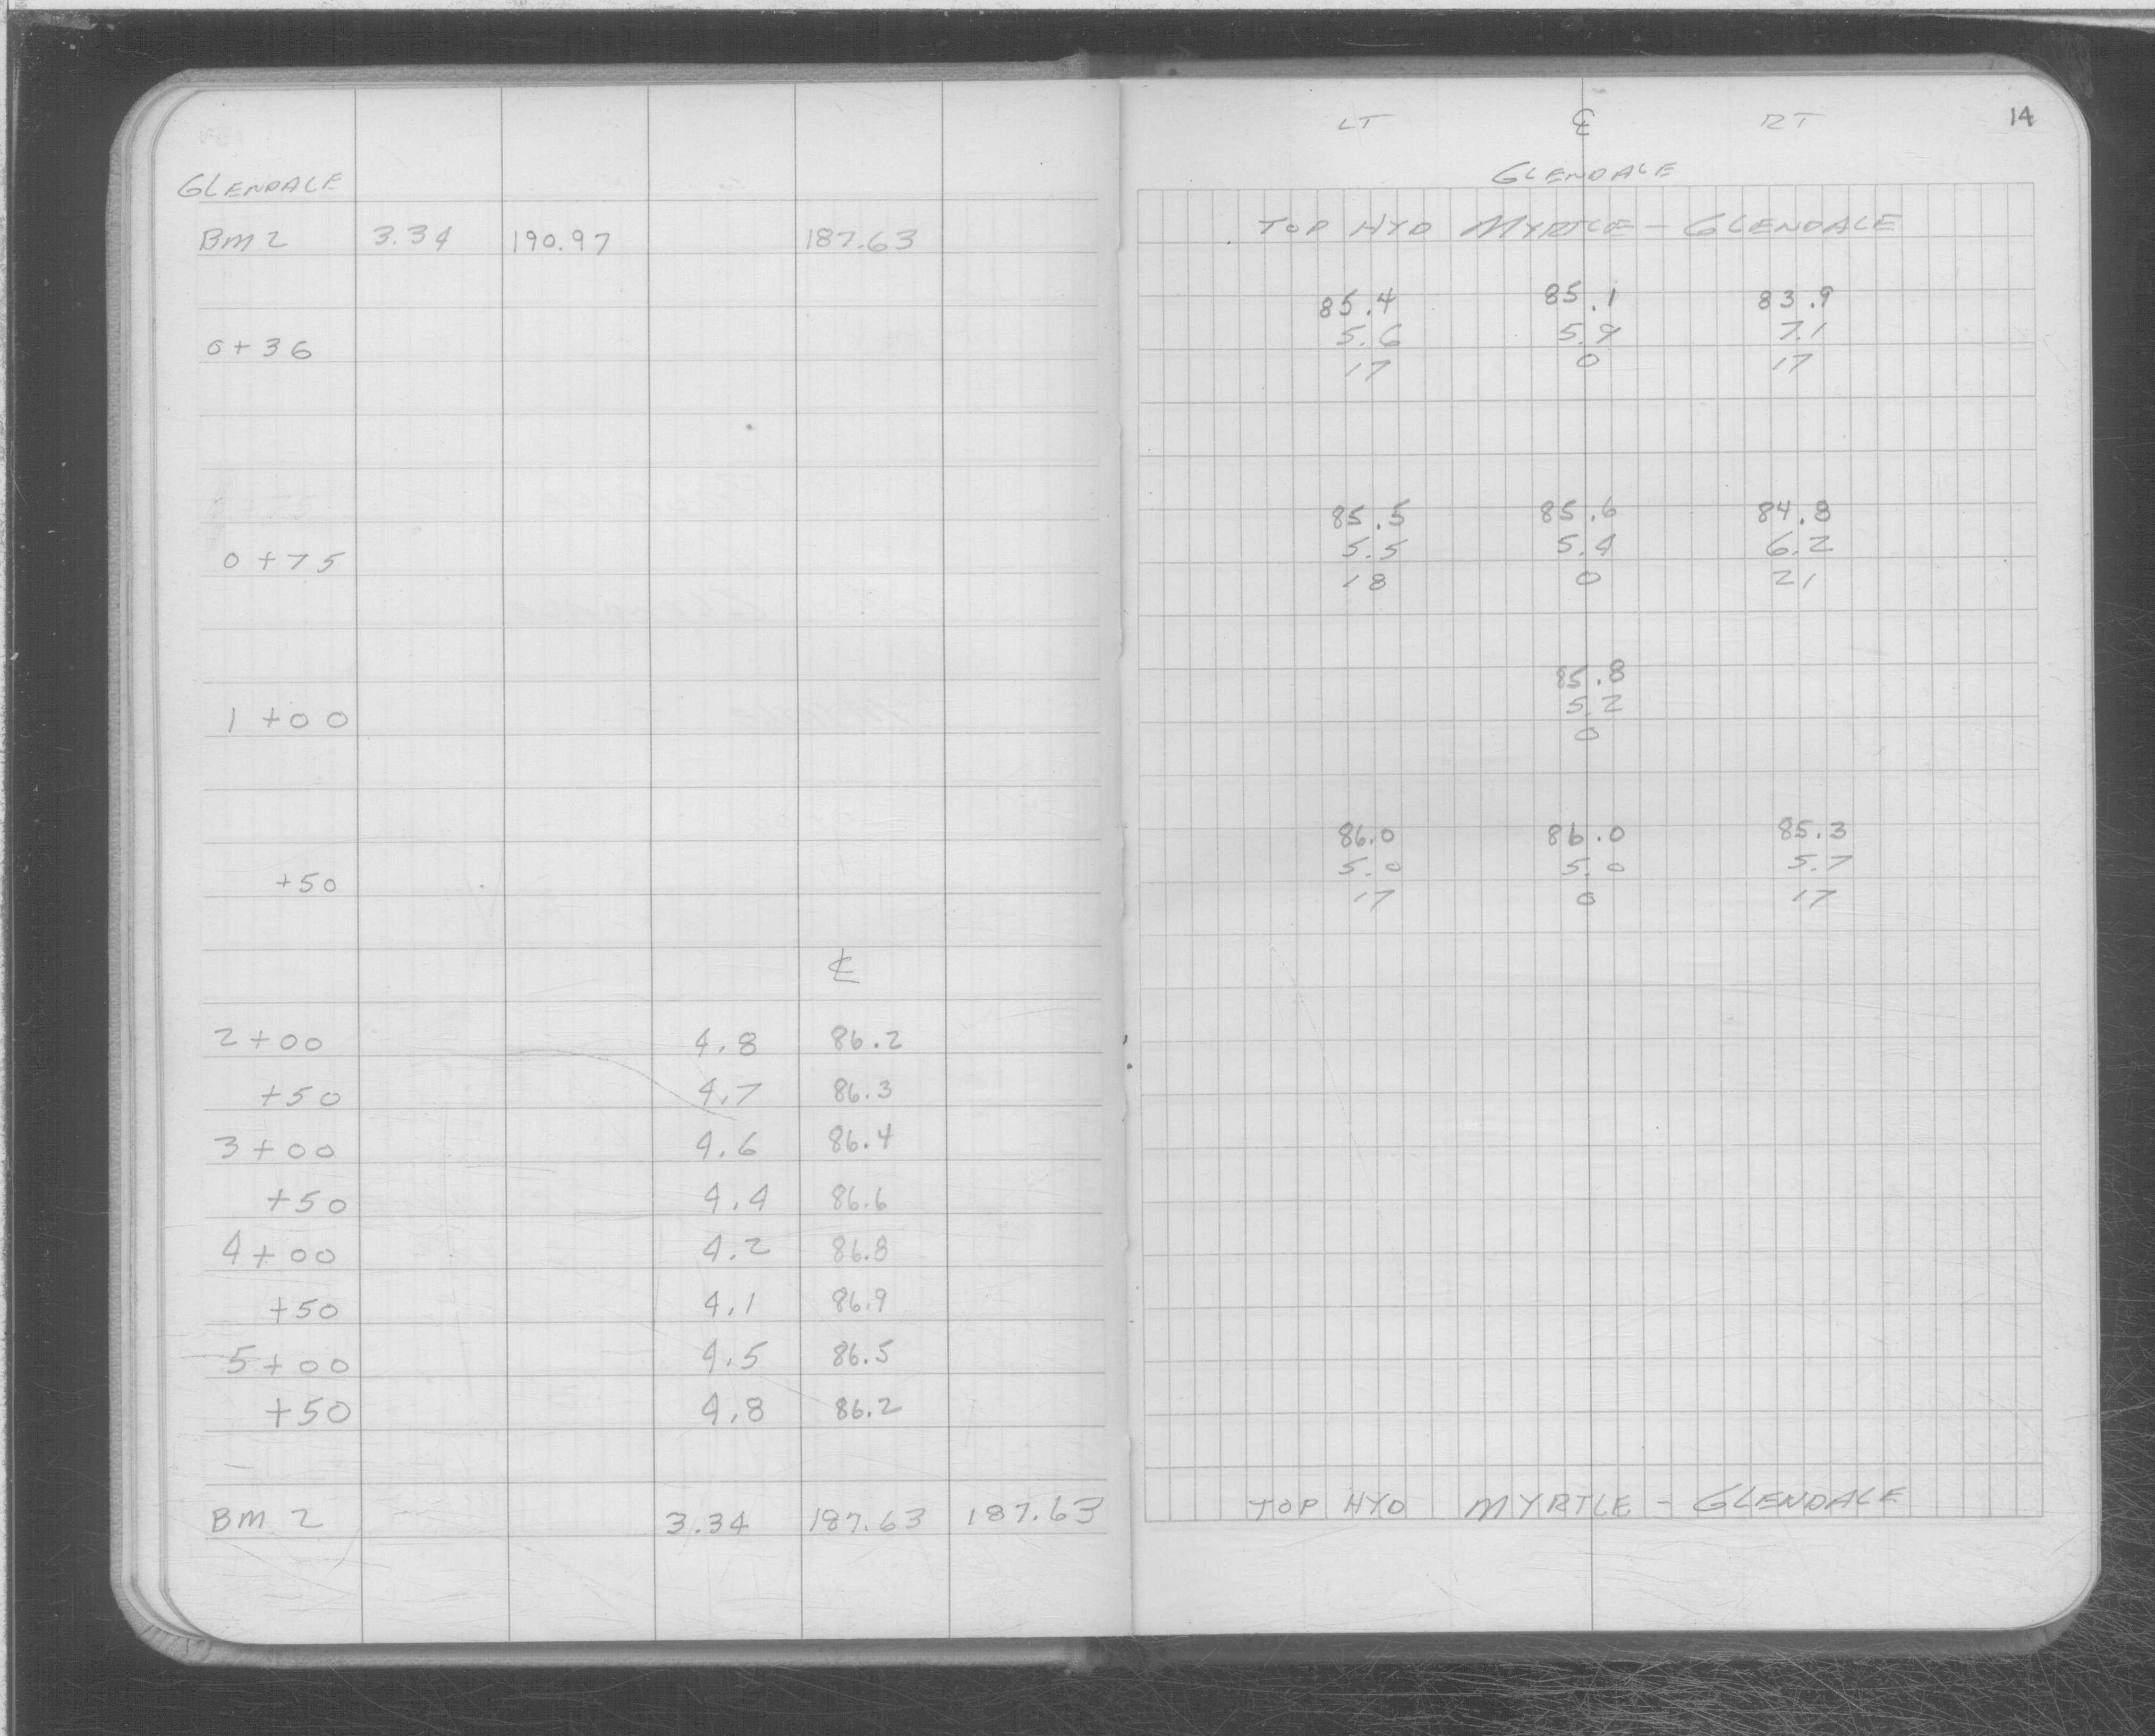 GLENDALE
BM 2 3.34 190.97 187.63
0+36
0+75
1+00
+50
℄
2+00 4.8 86.2
+50 4.7 86.3
3+00 4.6 86.4
+50 4.4 86.6
4+00 4.2 86.8
+50 4.1 86.9
5+00 4.5 86.5
+50 4.8 86.2
BM 2 3.34 187.63 187.63
LT ℄ RT 14
GLENDALE
TOP HYD MYRTLE - GLENDALE
85.4 85.1 83.9
5.6 5.9 7.1
17 0 17
85.5 85.6 84.8
5.5 5.4 6.2
18 0 21
85.8
5.2
0
86.0 86.0 85.3
5.0 5.0 5.7
17 0 17
TOP HYD MYRTLE - GLENDALE